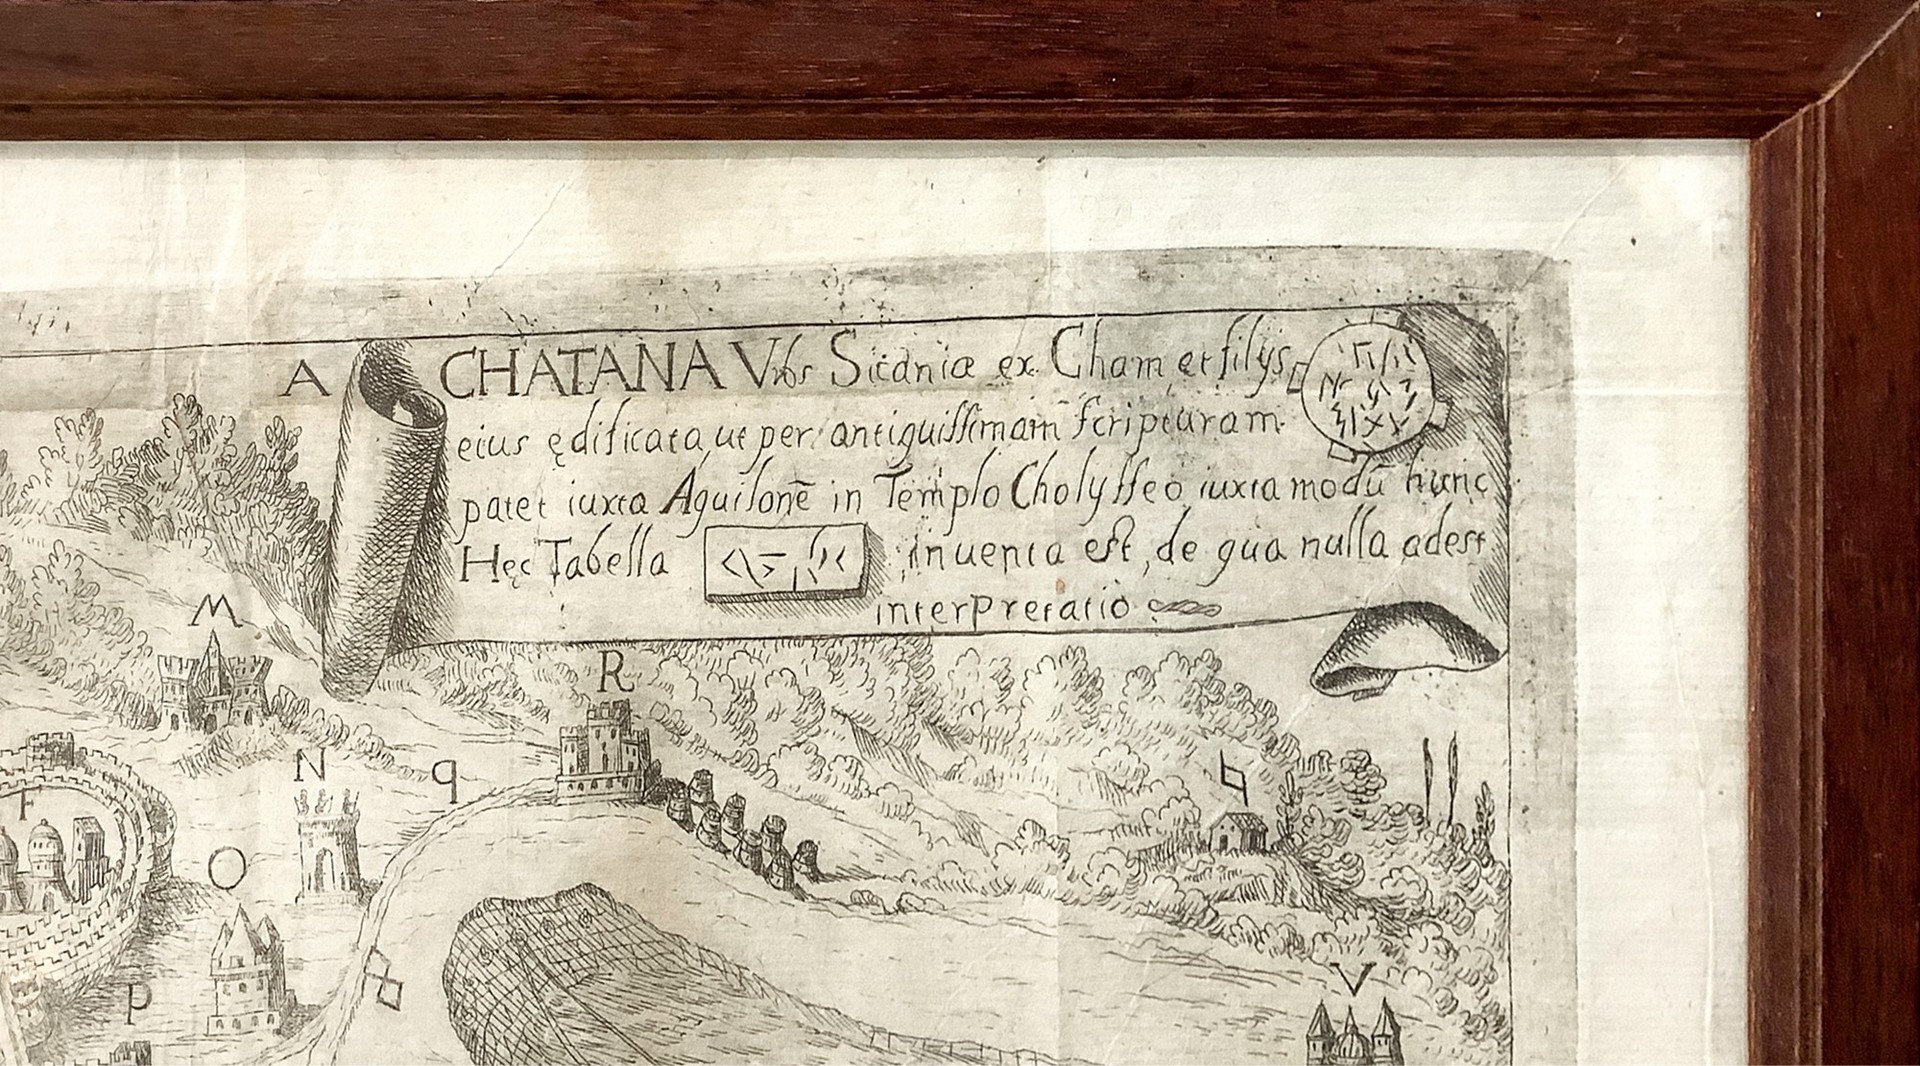 A CHATANA Vrbs Sicaniæ ex Cham et filijs
eius ędificata, ut per antiquissimam scripturam
patet iuxta Aquilonē in Templo Cholysseo iuxta modū hunc
Hęc Tabella inuenta est, de qua nulla adest
interpretatio
M
R
N
q
F
O
P
V